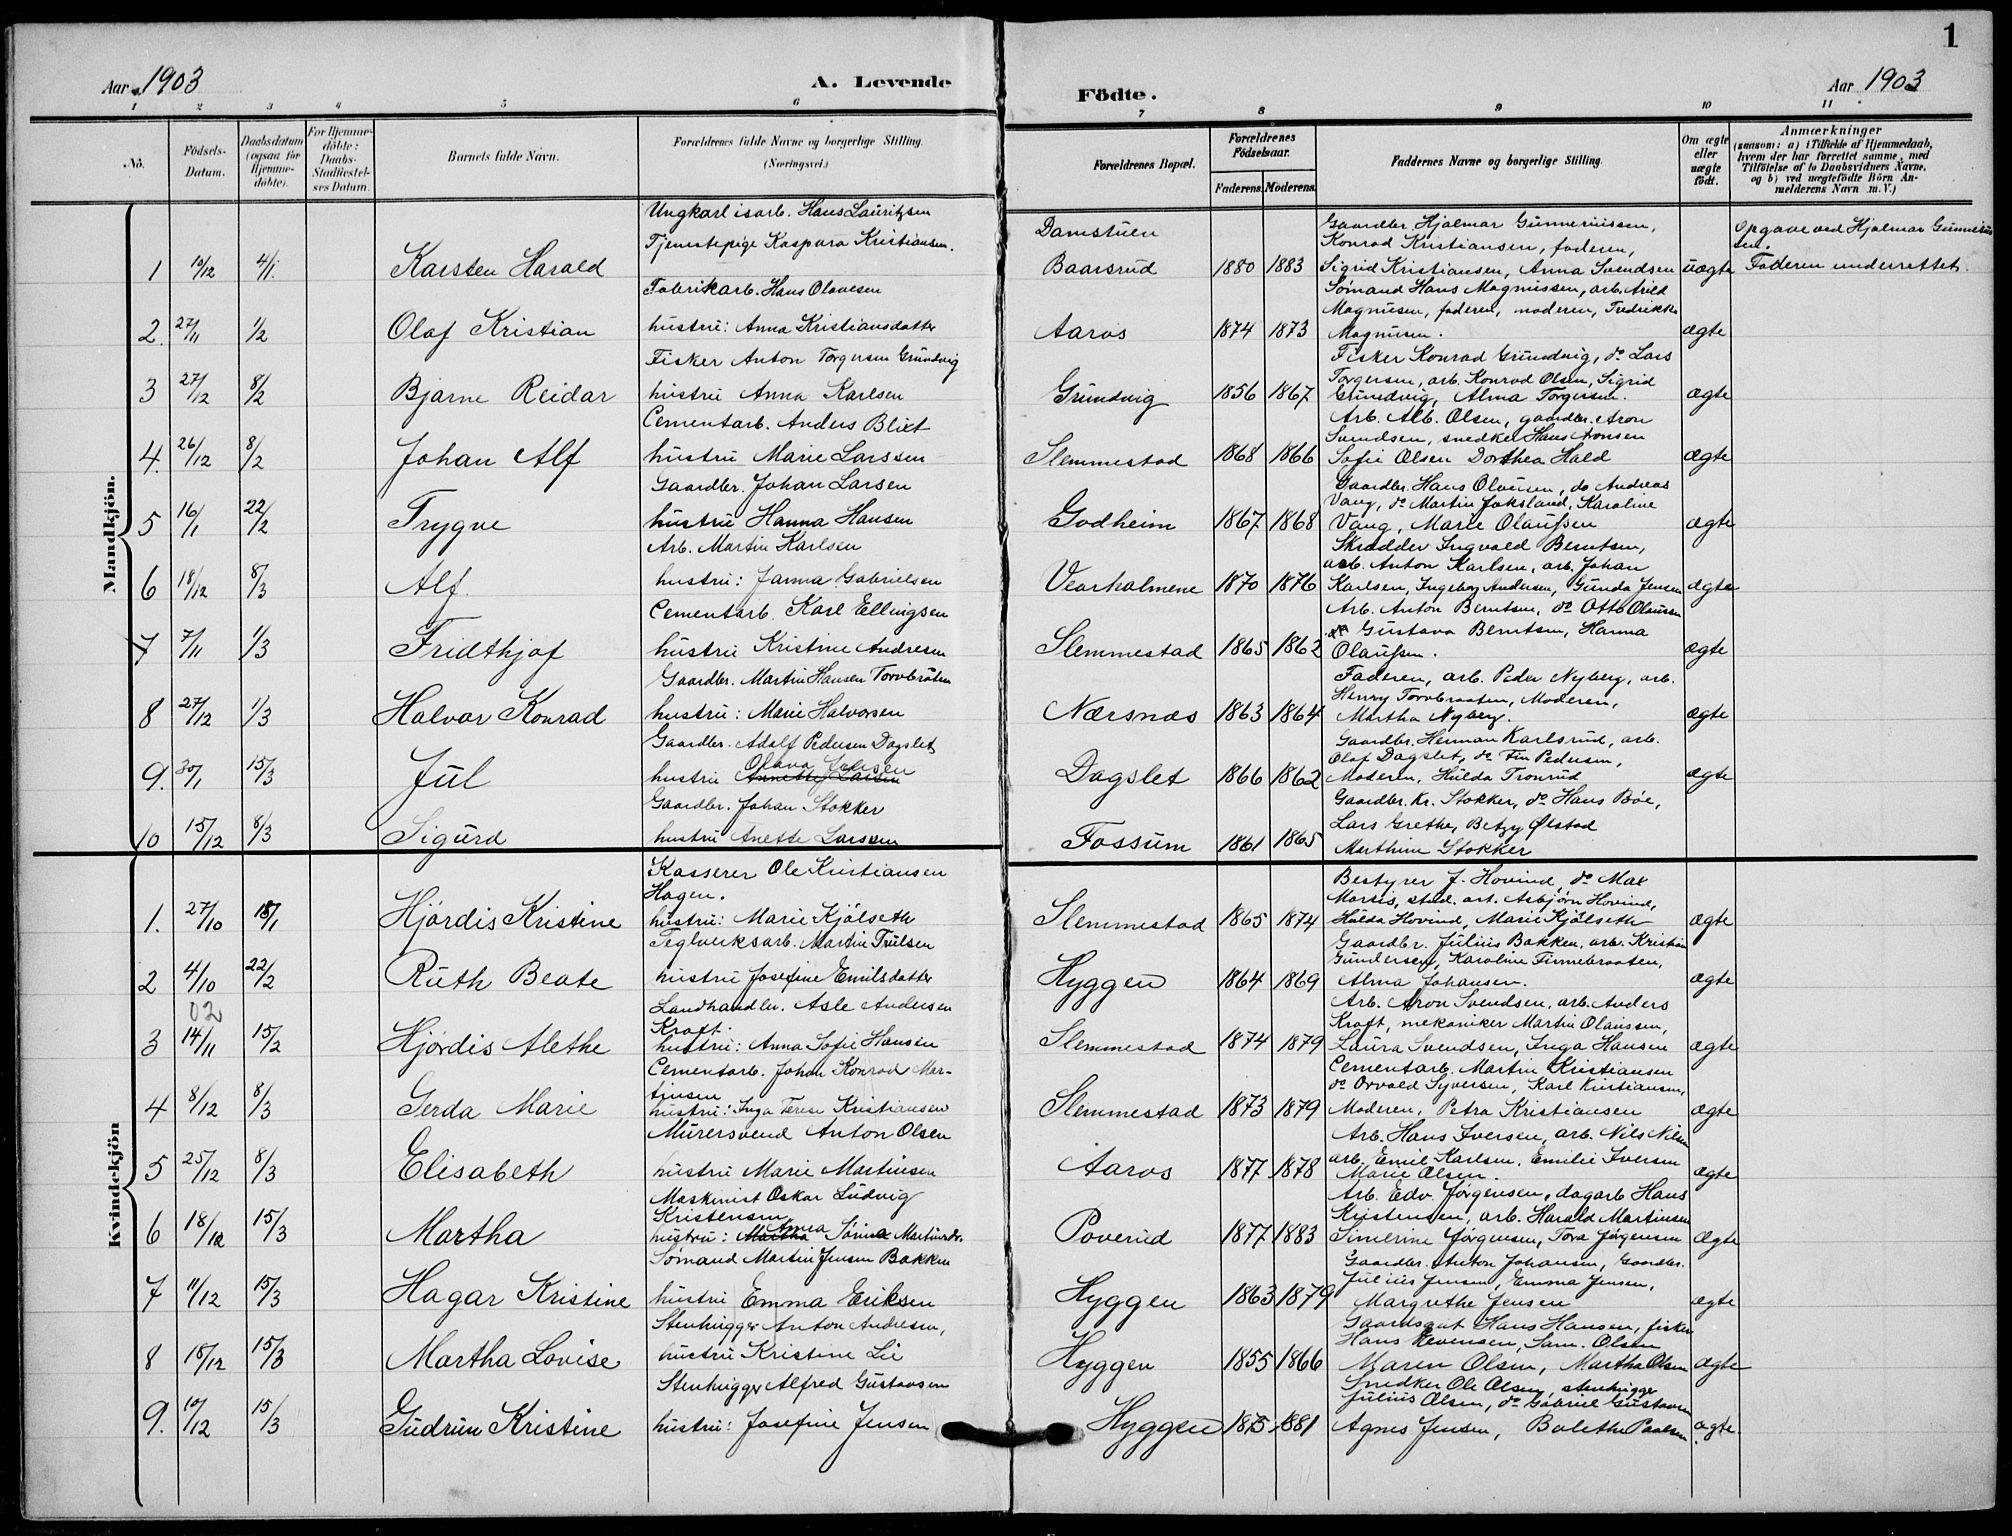 1
Aar 1903 A. Levende Födte. Aar 1903
1 2 3 4 5 6 7 8 9 10 11
No. Födsels-Datum. Daabsdatum (ogsaa for Hjemmedöbte). For Hjemmedöbte: Daabs-Stadfæstelses Datum. Barnets fulde Navn. Forældrenes fulde Navne og borgerlige Stilling. (Næringsvei.) Forældrenes Bopæl. Forældrenes Födselsaar. Faderens. Moderens. Faddernes Navne og borgerlige Stilling. Om ægte eller uægte födt. Anmærkninger (saasom: a) i Tilfælde af Hjemmedaab, hvem der har forrettet samme, med Tilföielse af to Daabsvidners Navne, og b) ved uægtefödte Börn Anmelderens Navn m. V.)
Mandkjön.
Ungkarl isarb. Hans Lauritzen Damstuen Gaardbr. Hjalmar Gunneriussen, Opgave ved Hjalmar Gunneriussen.
Tjenestepige Kaspara Kristiansen. Konrad Kristiansen, faderen,
1 10/12 4/1. Karsten Harald Baarsrud 1880 1883 Sigrid Kristiansen, Anna Svendsen uægte Faderen underrettet.
Fabrikarb. Hans Olavesen Sømand Hans Magnussen, arb. Arild
Magnusen, faderen, moderen, Fredrikke
2. 27/11 1/2 Olaf Kristian hustru: Anna Kristiansdatter Aaros 1874 1873 Magnusen. ægte
Fisker Anton Torgersen Grundvig Fisker Konrad Grundvig, do Lars
Torgersen, arb. Konrad Olsen, Sigrid
3 27/12 8/2 Bjarne Reidar hustru Anna Karlsen Grundvig 1856 1867 Grundvig, Alma Torgersen. ægte
Cementarb. Anders Blixt Arb. Alb. Olsen, gaardbr. Aron
Svendsen, snedker Hans Aronsen
4. 26/12 8/2 Johan Alf hustru Marie Larssen Slemmestad 1868 1866 Sofie Olsen Dorthea Hald ægte
Gaardbr. Johan Larsen Gaardbr. Hans Olausen, do Andreas
Vang, do Martin Jaksland, Karoline
5 16/1 22/2 Trygve hustru Hanna Hansen Godheim 1867 1868 Vang, Marie Olaussen ægte
Arb. Martin Karlsen Skrædder Ingvald Berntsen,
arb. Anton Karlsen, arb. Johan
6 18/12 8/3 Alf. hustru: Janna Gabrielsen Vearholmene 1870 1876 Karlsen, Ingeborg Andersen, Gunda Jensen ægte
Cementarb. Karl Ellingsen Arb. Anton Berntsen, do Otto Olaussen
Gustava Berntsen, Hanna
7 7/11 1/3 Fridthjof hustru Kristine Andresen Slemmestad 1865 1862 Olaussen. ægte
Gaardbr. Martin Hansen Torvbråten Faderen, arb. Peder Nyberg, arb.
Henry Torvbraaten, Moderen,
8 27/12 1/3 Halvar Konrad hustru: Marie Halvorsen Nærsnæs 1863 1864 Martha Nyberg. ægte
Gaardbr. Adolf Pedersen Dagslet Gaardbr. Herman Karlsrud, arb.
Olava Jensen Olaf Dagslet, do Fin Pedersen,
9. 30/1 15/3 Jul hustru Annette Larsen Dagslet 1866 1862 Moderen, Hulda Tronrud ægte
Gaardbr. Johan Stokker Gaardbr. Kr. Stokker, do Hans Bøe,
Lars Grethe, Betzy Ølstad
10 15/12 8/3 Sigurd hustru Anette Larssen Fossum 1861 1865 Marthine Stokker
Kvindekjön
Kasserer Ole Kristiansen Bestyrer J. Hovind, do Max
Hagen. stud. art. Asbjørn Hovind,
1. 27/10 18/1 Hjørdis Kristine hustru: Marie Kjølseth Slemmestad 1865 1874 Hulda Hovind, Marie Kjølseth ægte
Teglverksarb. Martin Trulsen Gaardbr. Julius Bakken, arb. Kristian
Gundersen, Karoline Finnebraaten,
2 4/10 22/2 Ruth Beate hustru Josefine Emilsdatter Hyggen 1864 1869 Alma Johansen. ægte
02 Landhandler. Asle Andersen Arb. Aron Svendsen, arb. Anders
Kraft. Kraft, mekaniker Martin Olaussen,
3 14/11 15/2 Hjørdis Alethe hustru: Anna Sofie Hansen Slemmestad 1874 1879 Laura Svendsen, Inga Hansen ægte
Cementarb. Johan Konrad Mar- Cementarb. Martin Kristiansen
tinsen do Orvald Syversen, Karl Kristiansen,
4 8/12 8/3 Gerda Marie hustru: Inga Terese Kristiansen Slemmestad 1873 1879 Moderen, Petra Kristiansen ægte
Murersvend Anton Olsen Arb. Hans Iversen, arb. Nils Nilsen
arb. Emil Karlsen, Emilie Iversen
5 25/12 8/3 Elisabeth hustru Marie Martinsen Aaros 1877 1878 Marie Olsen. ægte
Maskinist Oskar Ludvig Arb. Edv. Jørgensen, dagarb Hans
Kristensen Anna Kristensen, arb. Harald Martinsen
6 18/12 15/3 Martha hustru: Martha Sørine Martinsdr. Poverud 1877 1883 Simerine Jørgensen, Tora Jørgensen Ægte
Sømand Martin Jensen Bakken Gaardbr. Anton Johansen, Gaardbr.
Julius Jensen, Emma Jensen,
7 11/12 15/3 Hagar Kristine hustru Emma Eriksen Hyggen 1863 1879 Margrethe Jensen ægte
Stenhugger Anton Andresen, Gaardsgut Hans Hansen, fisker
Hans Evensen, Sam. Olsen
8 18/12 15/3 Martha Lovise hustru Kristine Lie Hyggen 1855 1866 Maren Olsen, Martha Olsen ægte
Stenhugger Alfred Gustavsen Snedker Ole Olsen, stenhugger
Julius Olsen, do Gabriel Gustavsen
9. 10/12 15/3 Gudrun Kristine hustru: Josefine Jensen Hyggen 1875 1881 Agnes Jensen, Bolethe Paulsen ægte.